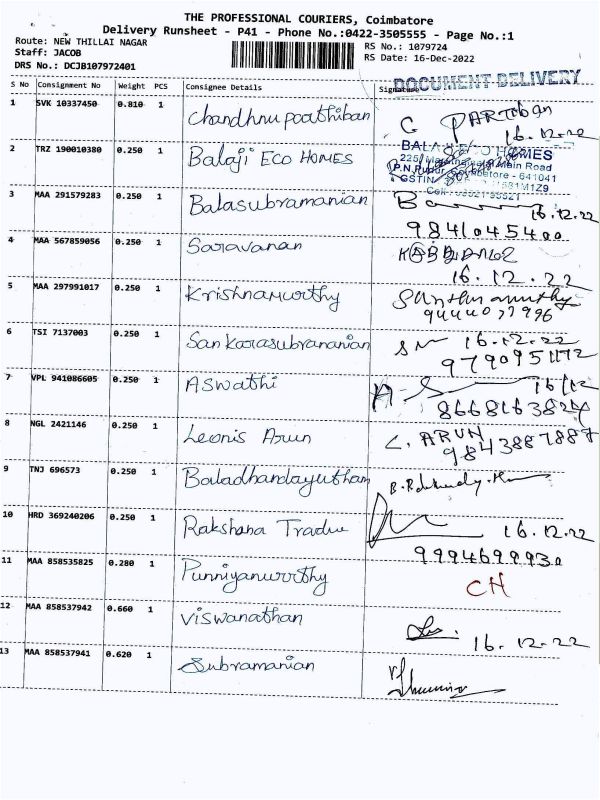 THE PROFESSIONAL COURIERS, Coimbatore
Delivery Runsheet - P41 - Phone No.:0422-3505555 - Page No.:1
Route: NEW THILLAI NAGAR
RS No.: 1079724
Staff: JACOB
RS Date: 16-Dec-2022
DRS No.: DCJB107972401
DOCUMENT DELIVERY
S No Consignment No Weight PCS Consignee Details Signature
1 SVK 10337450 0.810 1 Chandhnu paathiban C PARTIBAN
16.12.22
2 TRZ 190010380 0.250 1 Balaji ECO HOMES BALAJI ECO HOMES
225, Main Road
P.N.Pudur, Coimbatore - 641041
GSTIN
3 MAA 291579283 0.250 1 Balasubramanian
16.12.22
9841045400
4 MAA 567859056 0.250 1 Saravanan
16.12.22
5 MAA 297991017 0.250 1 Krishnamurthy
9444077996
6 TSI 7137003 0.250 1 Sankarasubramanian 16.12.22
9790951172
7 VPL 941086605 0.250 1 Aswathi 16/12
8 NGL 2421146 0.250 1 Leonis Arun L. ARUN
9843887887
9 TNJ 696573 0.250 1 Baladhandayutham
10 HRD 369240206 0.250 1 Rakshana 16.12.22
9994699930
11 MAA 858535825 0.280 1 Punniyamurrthy CH
12 MAA 858537942 0.660 1 Viswanathan
16.12.22
13 MAA 858537941 0.620 1 Subramanian